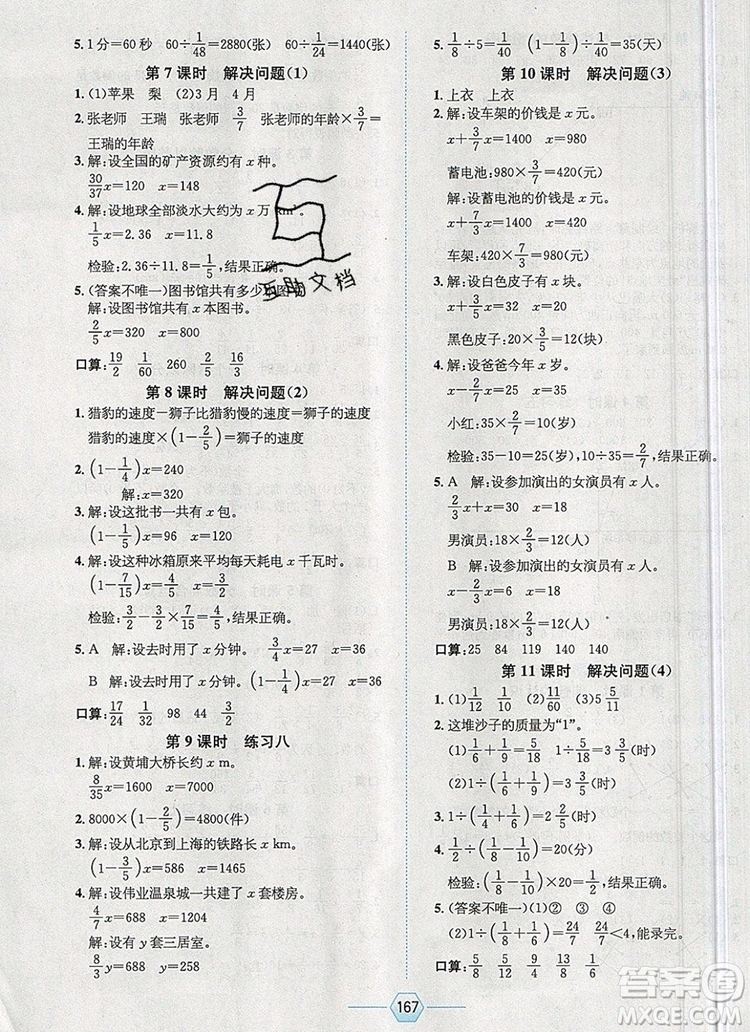 5. 1分=60秒 60÷1/48=2880(张) 60÷1/24=1440(张)
第7课时 解决问题(1)
1. (1)苹果 梨 (2)3月 4月
2. 张老师 王瑞 张老师 3/7 张老师的年龄×3/7=
王瑞的年龄
3. 解:设全国的矿产资源约有x种。
30/37x=120 x=148
4. 解:设地球全部淡水大约为x万km³。
1/5x=2.36 x=11.8
检验:2.36÷11.8=1/5,结果正确。
5. (答案不唯一)图书馆共有多少本图书?
解:设图书馆共有x本图书。
2/5x=320 x=800
口算:19/2 1/60 260 2/5 16/3
第8课时 解决问题(2)
1. 猎豹的速度-狮子比猎豹慢的速度=狮子的速度
猎豹的速度×(1-2/5)=狮子的速度
2. (1-1/4)x=240
解:x=320
3. 解:设这批书一共有x包。
(1-1/5)x=96 x=120
4. 解:设这种冰箱原来平均每天耗电x千瓦时。
(1-7/15)x=2/5 x=3/4
检验:3/4-2/5=7/20 7/20÷3/4=7/15,结果正确。
5. A 解:设去时用了x分钟。3/4x=27 x=36
B 解:设去时用了x分钟。(1-1/4)x=27 x=36
口算:17/24 1/32 98 9 44
第9课时 练习八
1. 解:设黄埔大桥长约x m。
8/35x=1600 x=7000
2. 8000×(1-3/5)=3200(米)
3. 解:设从北京到上海的铁路长x km。
(1-3/5)x=586 x=1465
4. 解:设伟业温泉城一共建了x套楼房。
4/7x=688 x=1204
解:设有y套三居室。
8/3y=688 y=258
5. 1/7÷5=1/35 (1-1/7)÷1/35=30(天)
第10课时 解决问题(3)
1. 上衣 上衣
2. 解:设车架的价钱是x元。
x+3/7x=1400 x=980
蓄电池:980×3/7=420(元)
解:设蓄电池的价钱是x元。
x+7/3x=1400 x=420
车架:420×7/3=980(元)
3. 解:设白色皮子有x块。
x+3/5x=32 x=20
黑色皮子:20×3/5=12(块)
4. 解:设爸爸今年x岁。
x-2/7x=25 x=35
小红:35×2/7=10(岁)
检验:35-10=25(岁),10÷35=2/7,结果正确。
5. A 解:设参加演出的女演员有x人。
x+2/3x=30 x=18
男演员:18×2/3=12(人)
B 解:设参加演出的女演员有x人。
x-2/3x=6 x=18
男演员:18×2/3=12(人)
口算:25 84 119 140 140
第11课时 解决问题(4)
1. (1)1/12 1/10 (2)11/60 (3)5 5/11
2. “这堆沙子的质量为“1”。
(1)1/6+1/9=5/18 1÷5/18=18/5(时)
(2)1÷(1/6+1/9)=18/5(时)
3. 1÷(1/4+1/6)=12/5(时)
4. 1/2÷(1/8-1/10)=20(分)
检验:(1/8-1/10)×20=1/2,结果正确。
5. (答案不唯一)(1)② ③ ④
(2)1÷(1/8+1/6)=24/7 24/7<4,能录完。
167
互助文档
答案圈
MXQE.COM